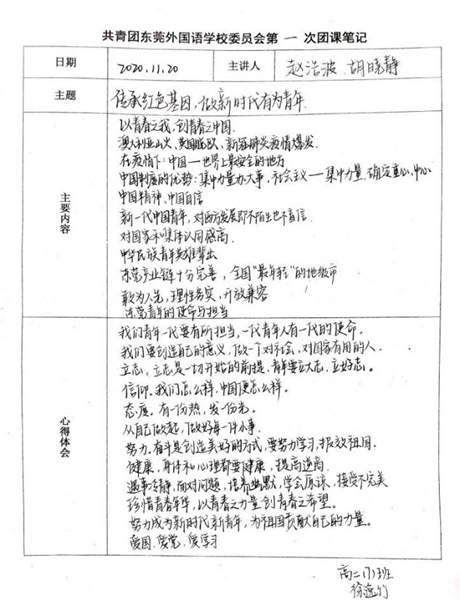 共青团东莞外国语学校委员会第 一 次团课笔记
日期 2020.11.20 主讲人 赵浩波 胡晓静
主题 传承红色基因,做新时代有为青年
主要内容
以青春之我,创青春之中国.
澳大利亚山火、英国脱欧、新冠肺炎疫情爆发.
在疫情下:中国——世界上最安全的地方
中国制度的优势:集中力量办大事,社会主义——集中力量,确定重心,中心
中国精神,中国自信
新一代中国青年,对西方发展即不陌生也不盲信.
对国家和集体认同感高.
中华民族青年英雄辈出
东莞产业链十分完善,全国“最年轻”的地级市
敢为人先,理性务实,开放兼容
东莞青年的使命与担当
心得体会
我们青年一代要有所担当,一代青年人有一代的使命.
我们要创造自己的意义,做一个对社会,对国家有用的人.
立志,立志是一切开始的前提,青年要立大志,立好志.
信仰。我们怎么样,中国便怎么样。
态度。有一份热,发一份光。
从自己做起,做好每一件小事.
努力.奋斗是创造美好的方式,要努力学习,报效祖国.
健康,身体和心理都要健康,提高逆商.
遇事冷静,面对问题,培养幽默,学会原谅,接受不完美
珍惜青春年华,以青春之力量创青春之希望。
努力成为新时代新青年,为祖国贡献自己的力量。
爱国,爱党,爱学习
高二(7)班